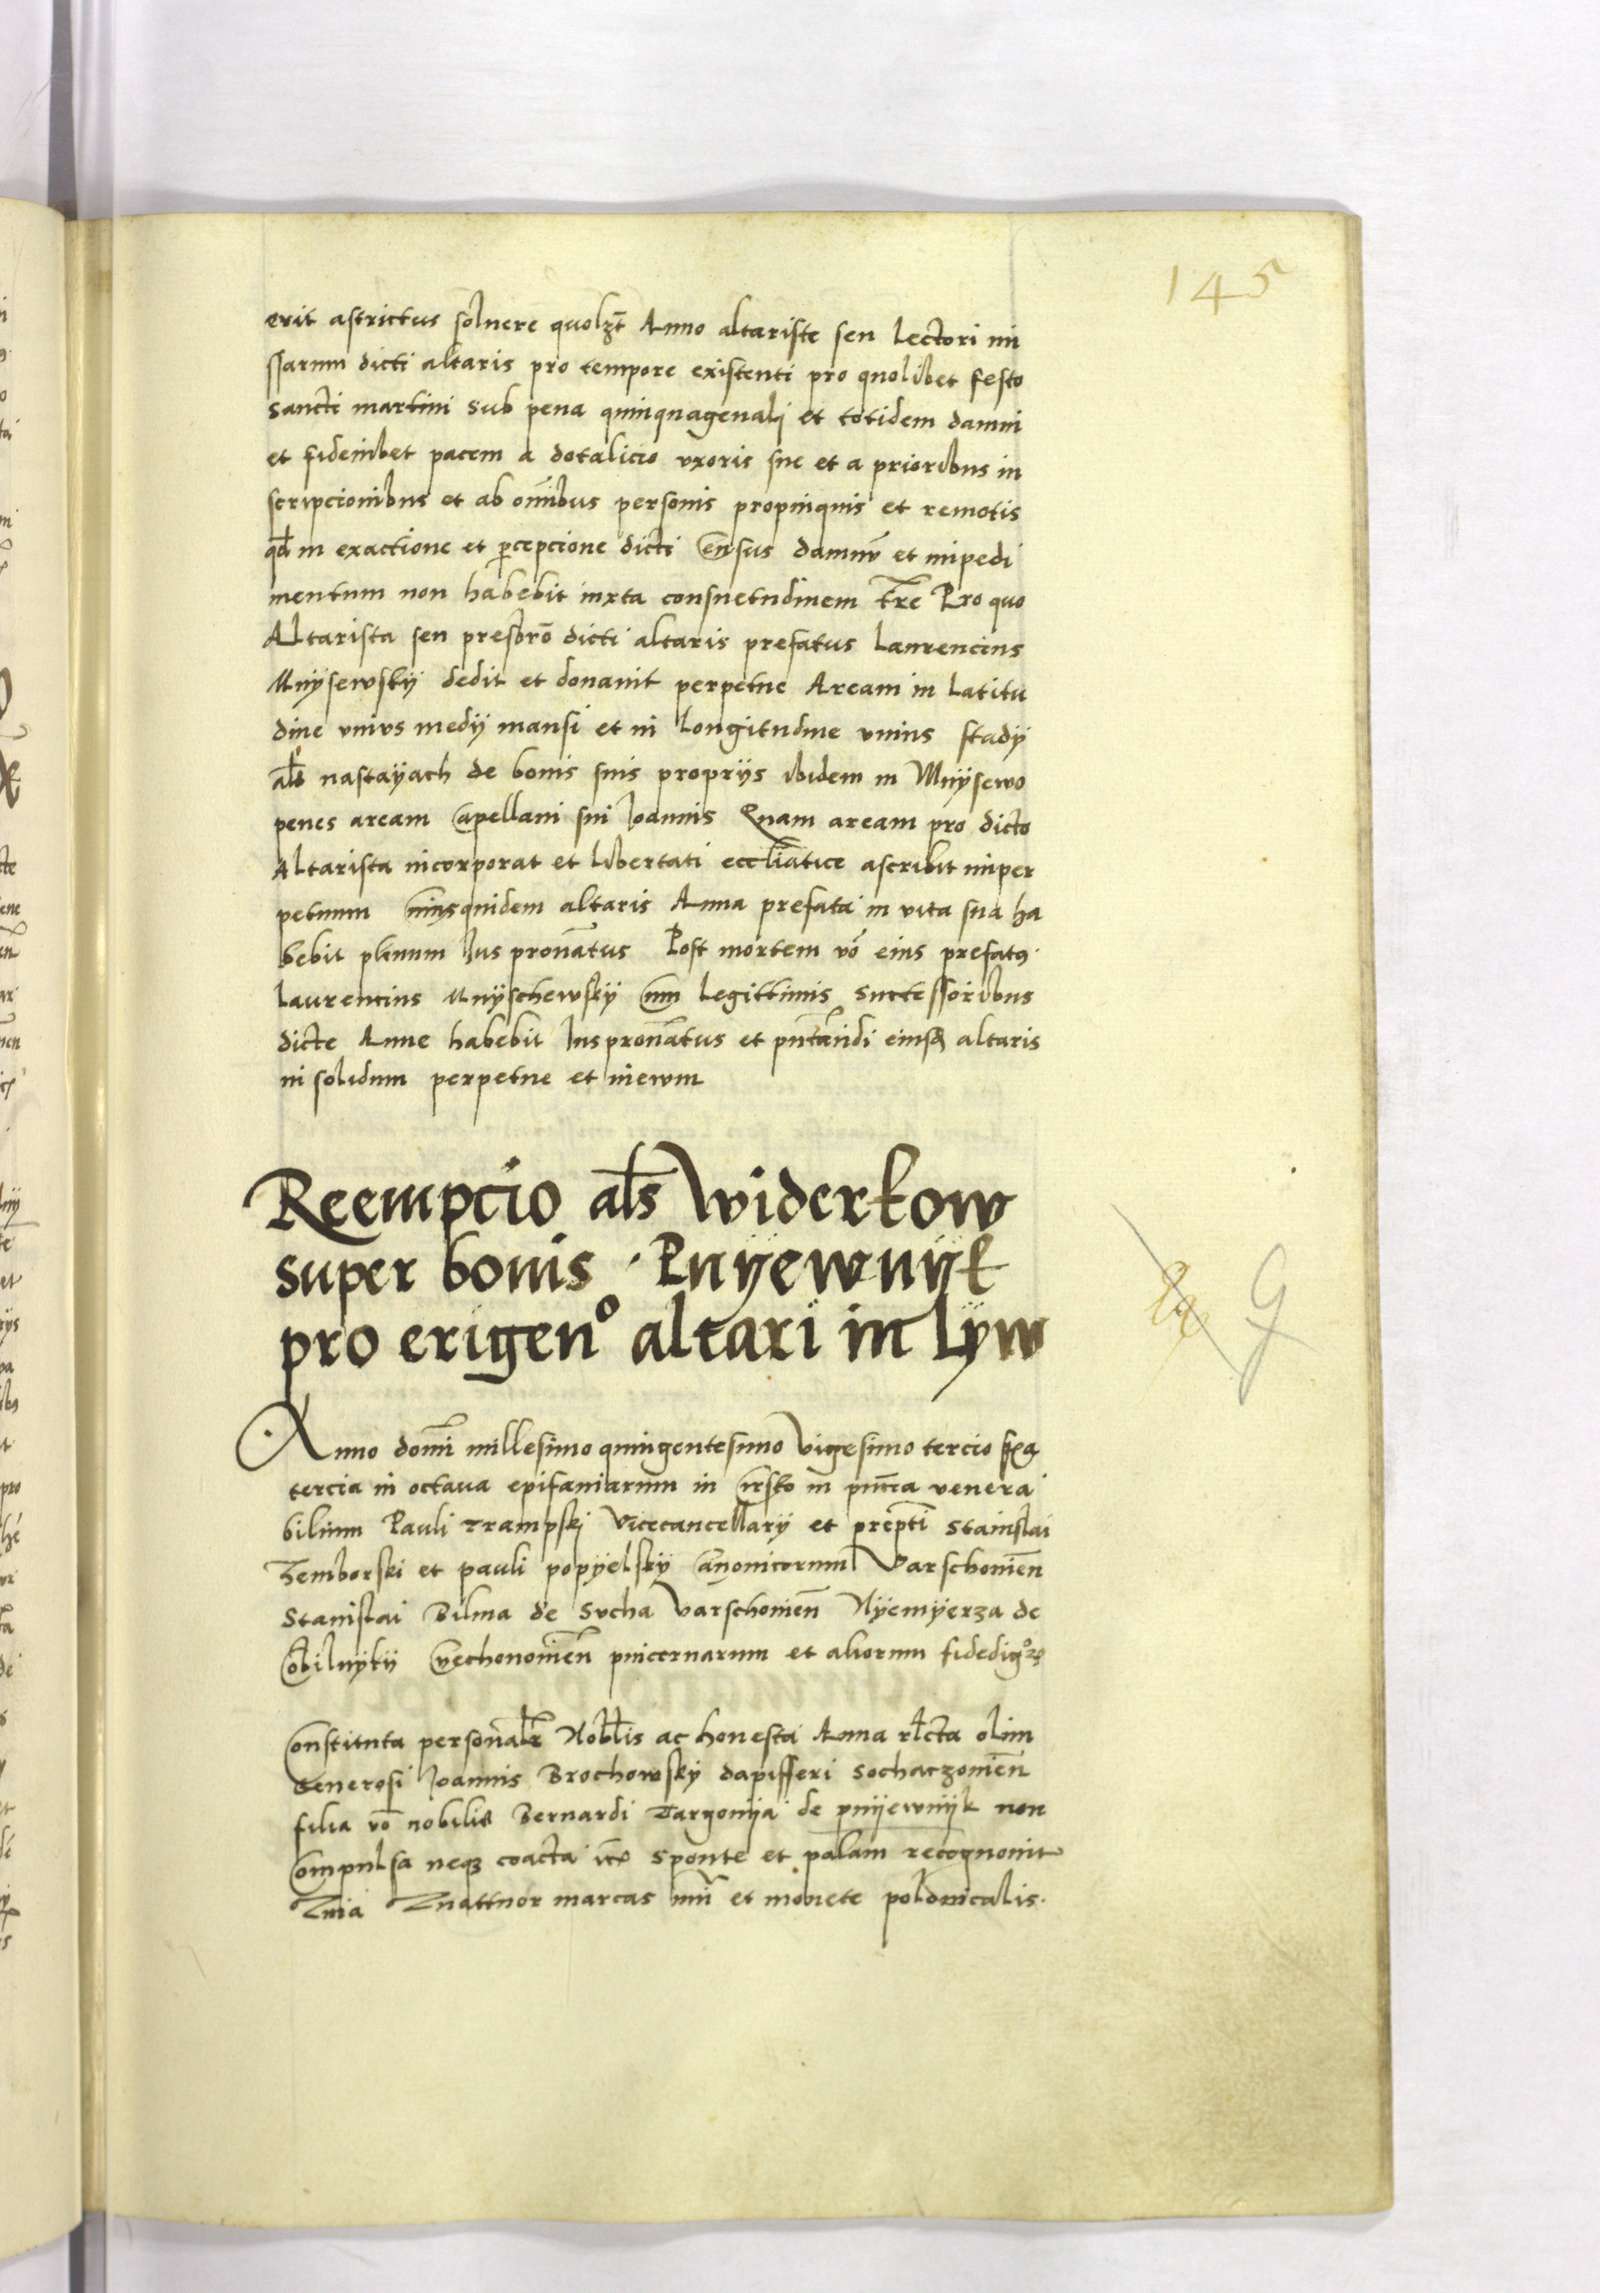 145
erit astrictus soluere quolzt Anno altariste seu Lectori mi
ssarum dicti altaris pro tempore existenti pro quolibet festo
sancti martini sub pena quinquagenalj et totidem damni
et fideiubet pacem a dotalicio vxoris sue et a prioribus in
scripcionibus et ab om̄ibus personis propinquis et remotis
qd in exactione et percepcione dicti Census damnū et impedi
mentum non habebit iuxta consuetudinem t̄re Pro quo
Altarista seu presbr̄o dicti altaris prefatus Laurencius
Mnÿsewskÿ dedit et donauit perpetue Aream in Latitu
dine vnius medÿ mansi et in Longitudine vnius stadÿ
al̄s nastaÿach de bonis suis proprÿs ibidem in Mnÿsewo
penes aream Capellani sui Joannis Quam aream pro dicto
Altarista incorporat et Libertati eccl̄iatice ascribit imper
petuum Cuiusquidem altaris Anna prefata in vita sua ha
bebit plenum Jus pron̄atus Post mortem vō eius prefatꝰ
Laurencius Mnÿschewskÿ Cum Legittimis successoribus
dicte Anne habebit Jus pron̄atus et pn̄tandi eiusdē altaris
in solidum perpetue et in ewm
Reempcio al̄s Widerkow
super bonis · Pnÿewnÿk
pro erigen° altari in Lÿw
Anno domi̅ millesimo quingentesimo Vigesimo tercio fr̄a
tercia in octaua epifaniarum in Cirsko in pn̄cia venera
bilium Pauli Trampskj Vicecancellarÿ et prep̄ti Stanislai
Zemborski et pauli popÿelskÿ Canonicorum Varschouien̄
Stanislai Bilma de Sucha Varschouien̄ Nÿemÿerza de
Cobilnÿkÿ Czechonouien̄ pincernarum et aliorum fidedig°rꝫ
Constituta personal̄r Nobil̄is ac honesta Anna rl̄cta olim
Generosi Joannis Brochowskÿ dapifferi Sochaczouien̄
filia vō nobilis Bernardi Targonÿa de pnÿewnÿk non
Compulsa neqꝫ coacta sponte et palam recognouit
Quia Quattuor marcas nūi et monete polonicalis.